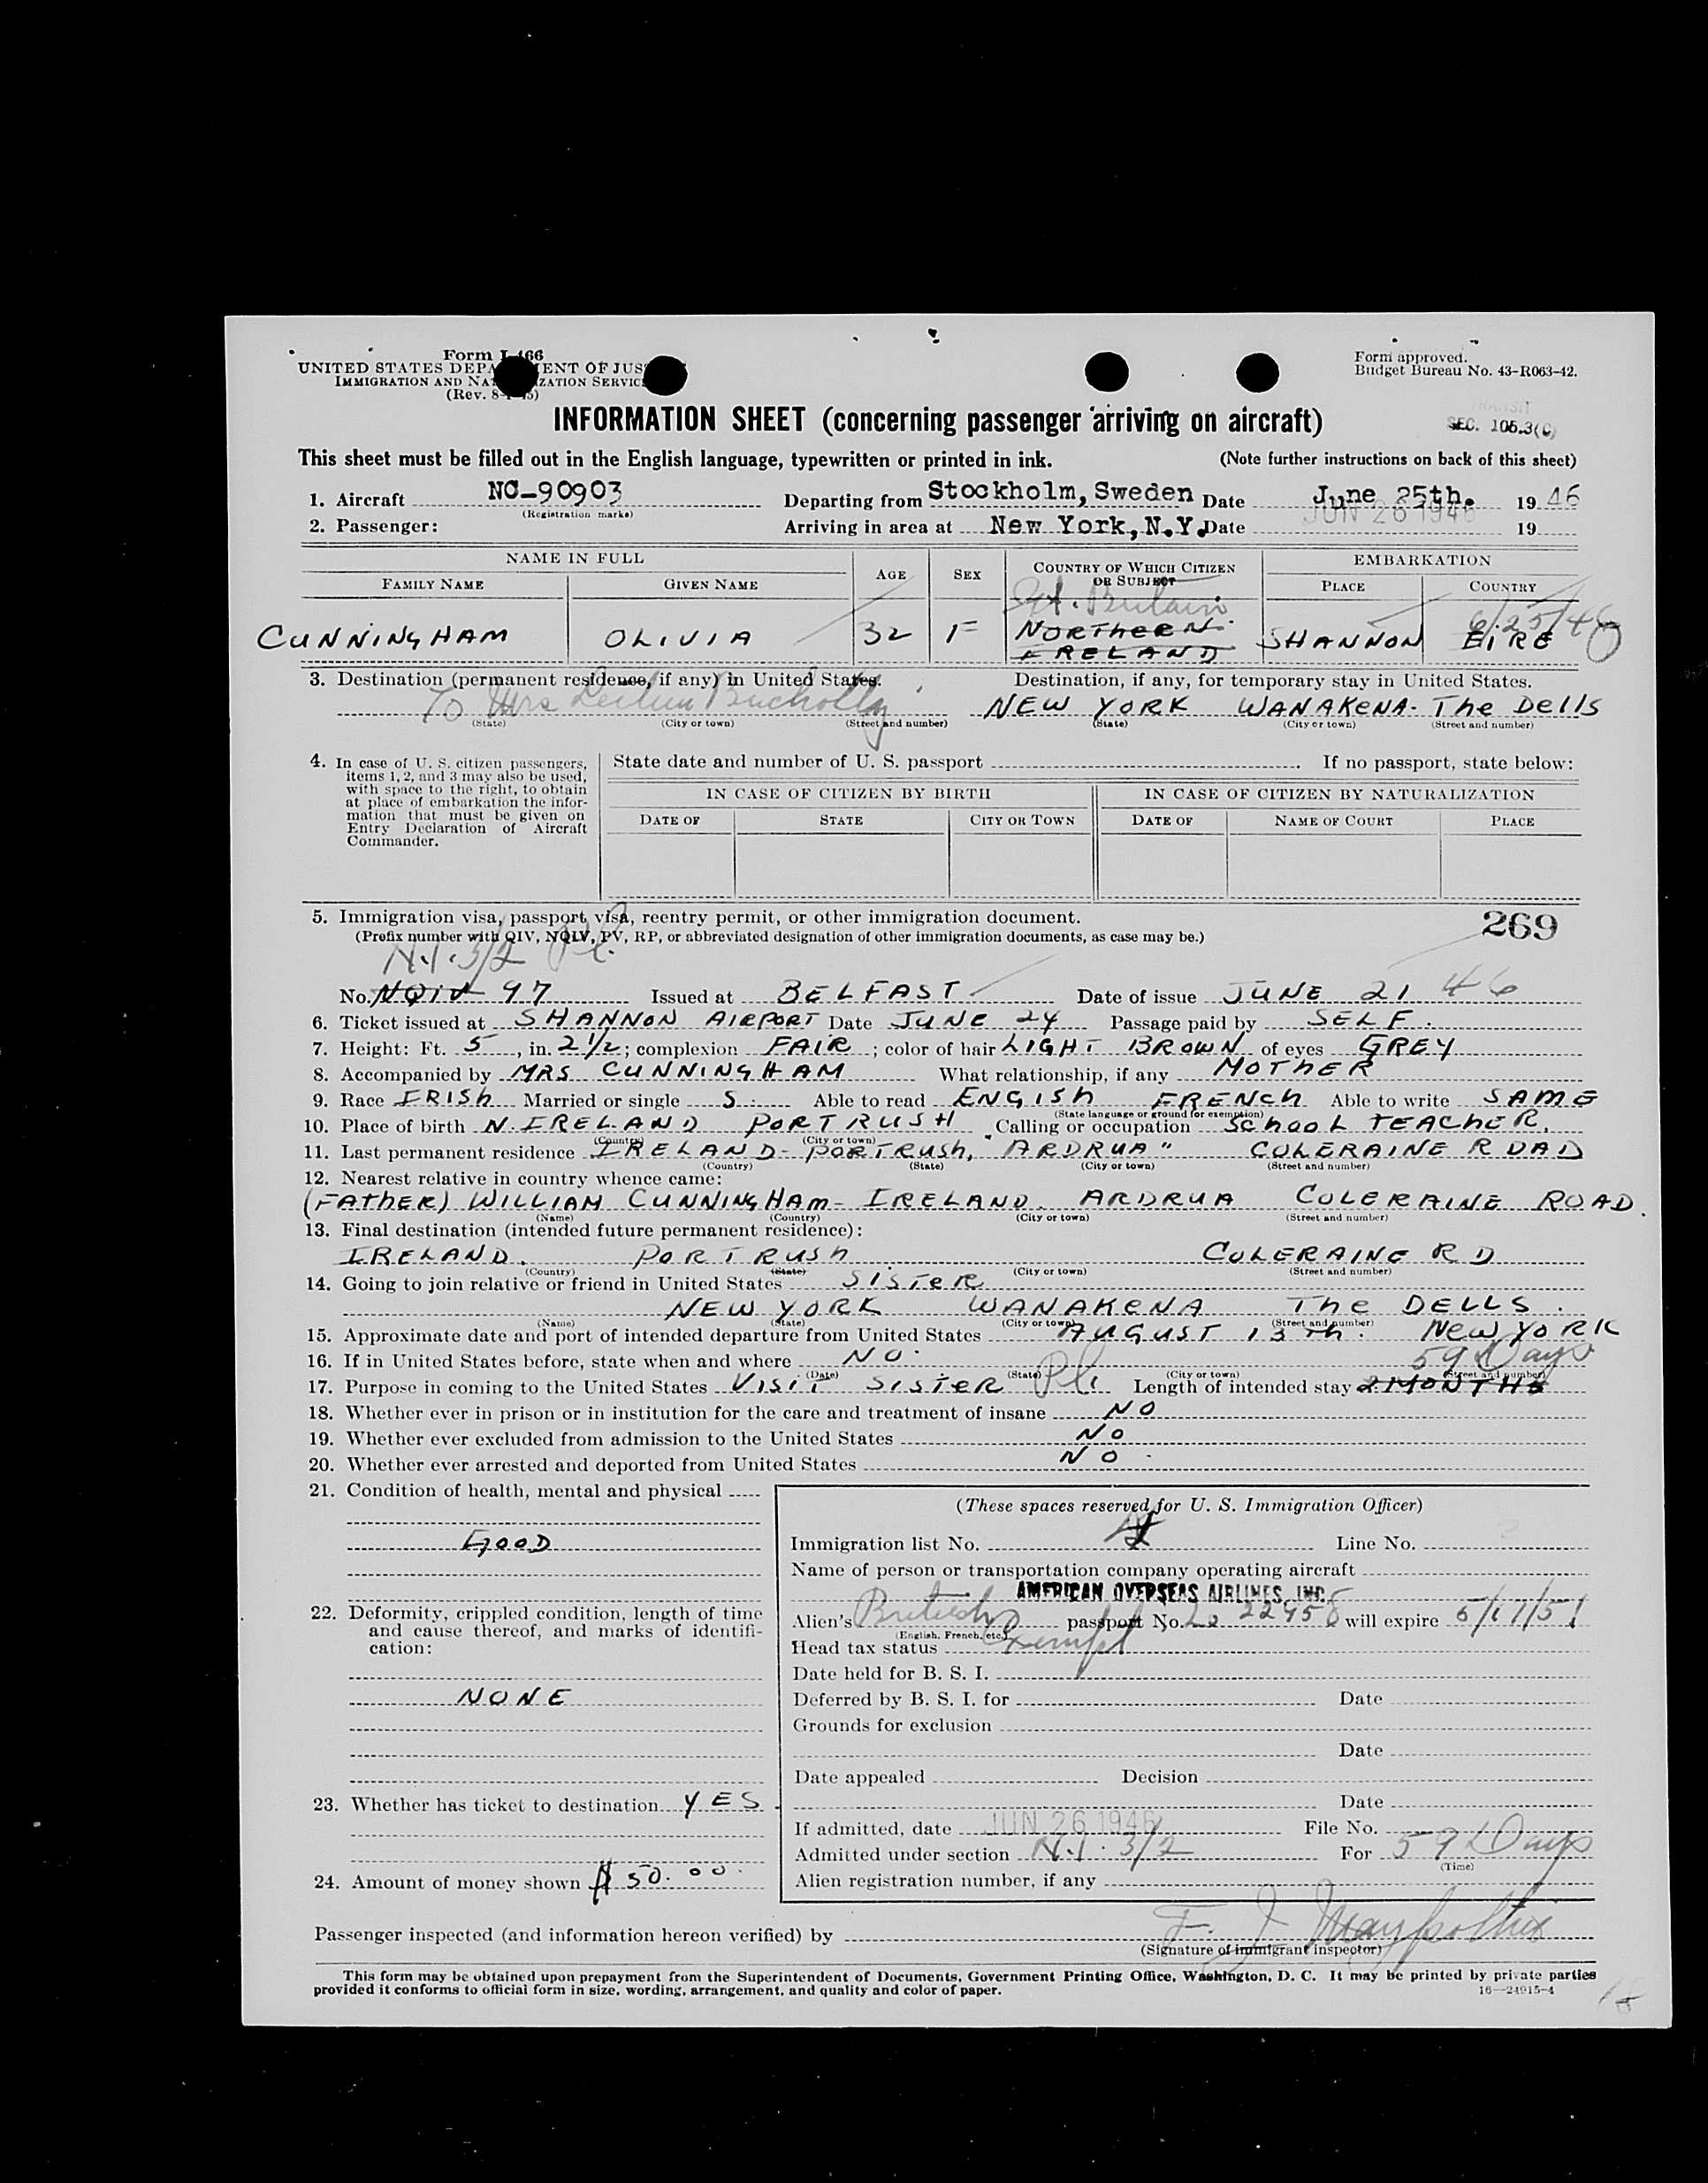 Form I-466
UNITED STATES DEPARTMENT OF JUSTICE
IMMIGRATION AND NATURALIZATION SERVICE
(Rev. 8-1-45)
Form approved.
Budget Bureau No. 43-R063-42.
INFORMATION SHEET (concerning passenger arriving on aircraft)
TRANSIT
SEC. 105.3(c)
This sheet must be filled out in the English language, typewritten or printed in ink. (Note further instructions on back of this sheet)
1. Aircraft NC-90903 Departing from Stockholm, Sweden Date June 25th. 1946
(Registration marks)
2. Passenger: Arriving in area at New York, N.Y. Date JUN 26 1946 19
NAME IN FULL AGE SEX COUNTRY OF WHICH CITIZEN OR SUBJECT EMBARKATION
FAMILY NAME GIVEN NAME PLACE COUNTRY
Gt. Britain 6/25/46
CUNNINGHAM OLIVIA 32 F NORTHERN IRELAND SHANNON EIRE
3. Destination (permanent residence, if any) in United States. Destination, if any, for temporary stay in United States.
To Mrs NEW YORK WANAKENA. The Dells
(State) (City or town) (Street and number) (State) (City or town) (Street and number)
4. In case of U. S. citizen passengers, items 1, 2, and 3 may also be used, with space to the right, to obtain at place of embarkation the information that must be given on Entry Declaration of Aircraft Commander.
State date and number of U. S. passport If no passport, state below:
IN CASE OF CITIZEN BY BIRTH IN CASE OF CITIZEN BY NATURALIZATION
DATE OF STATE CITY OR TOWN DATE OF NAME OF COURT PLACE
5. Immigration visa, passport visa, reentry permit, or other immigration document. 269
(Prefix number with QIV, NQIV, PV, RP, or abbreviated designation of other immigration documents, as case may be.)
N.I. 3/2 Pl.
No. NQIV 97 Issued at BELFAST Date of issue JUNE 21 46
6. Ticket issued at SHANNON AIRPORT Date JUNE 24 Passage paid by SELF.
7. Height: Ft. 5, in. 2 1/2; complexion FAIR; color of hair LIGHT BROWN of eyes GREY
8. Accompanied by MRS CUNNINGHAM What relationship, if any MOTHER
9. Race IRISH Married or single S. Able to read ENGISH FRENCH Able to write SAME
(State language or ground for exemption)
10. Place of birth N. IRELAND PORTRUSH Calling or occupation SCHOOL TEACHER.
(Country) (City or town)
11. Last permanent residence IRELAND- PORTRUSH, "ARDRUA" COLERAINE ROAD
(Country) (State) (City or town) (Street and number)
12. Nearest relative in country whence came:
(FATHER) WILLIAM CUNNINGHAM- IRELAND. ARDRUA COLERAINE ROAD.
(Name) (Country) (City or town) (Street and number)
13. Final destination (intended future permanent residence):
IRELAND. PORTRUSH COLERAINE RD
(Country) (State) (City or town) (Street and number)
14. Going to join relative or friend in United States SISTER
NEW YORK WANAKENA The DELLS.
(Name) (State) (City or town) (Street and number)
15. Approximate date and port of intended departure from United States AUGUST 13TH. NEW YORK
16. If in United States before, state when and where NO. 59 Days
(Date) (State) (City or town) (Street and number)
17. Purpose in coming to the United States VISIT SISTER Pl. Length of intended stay 2 MONTHS
18. Whether ever in prison or in institution for the care and treatment of insane NO
19. Whether ever excluded from admission to the United States NO
20. Whether ever arrested and deported from United States NO.
21. Condition of health, mental and physical
GOOD
22. Deformity, crippled condition, length of time and cause thereof, and marks of identification:
NONE
23. Whether has ticket to destination YES
24. Amount of money shown $50.00.
(These spaces reserved for U. S. Immigration Officer)
Immigration list No. Line No. 2
Name of person or transportation company operating aircraft
AMERICAN OVERSEAS AIRLINES, INC.
Alien's British passport No. will expire 5/17/51
(English, French, etc.)
Head tax status Exempt
Date held for B. S. I.
Deferred by B. S. I. for Date
Grounds for exclusion
Date
Date appealed Decision
Date
If admitted, date JUN 26 1946 File No.
Admitted under section N.I. 3/2 For 59 Days
(Time)
Alien registration number, if any
Passenger inspected (and information hereon verified) by F. J.
(Signature of immigrant inspector)
This form may be obtained upon prepayment from the Superintendent of Documents, Government Printing Office, Washington, D. C. It may be printed by private parties
provided it conforms to official form in size, wording, arrangement, and quality and color of paper.
16—24915-4